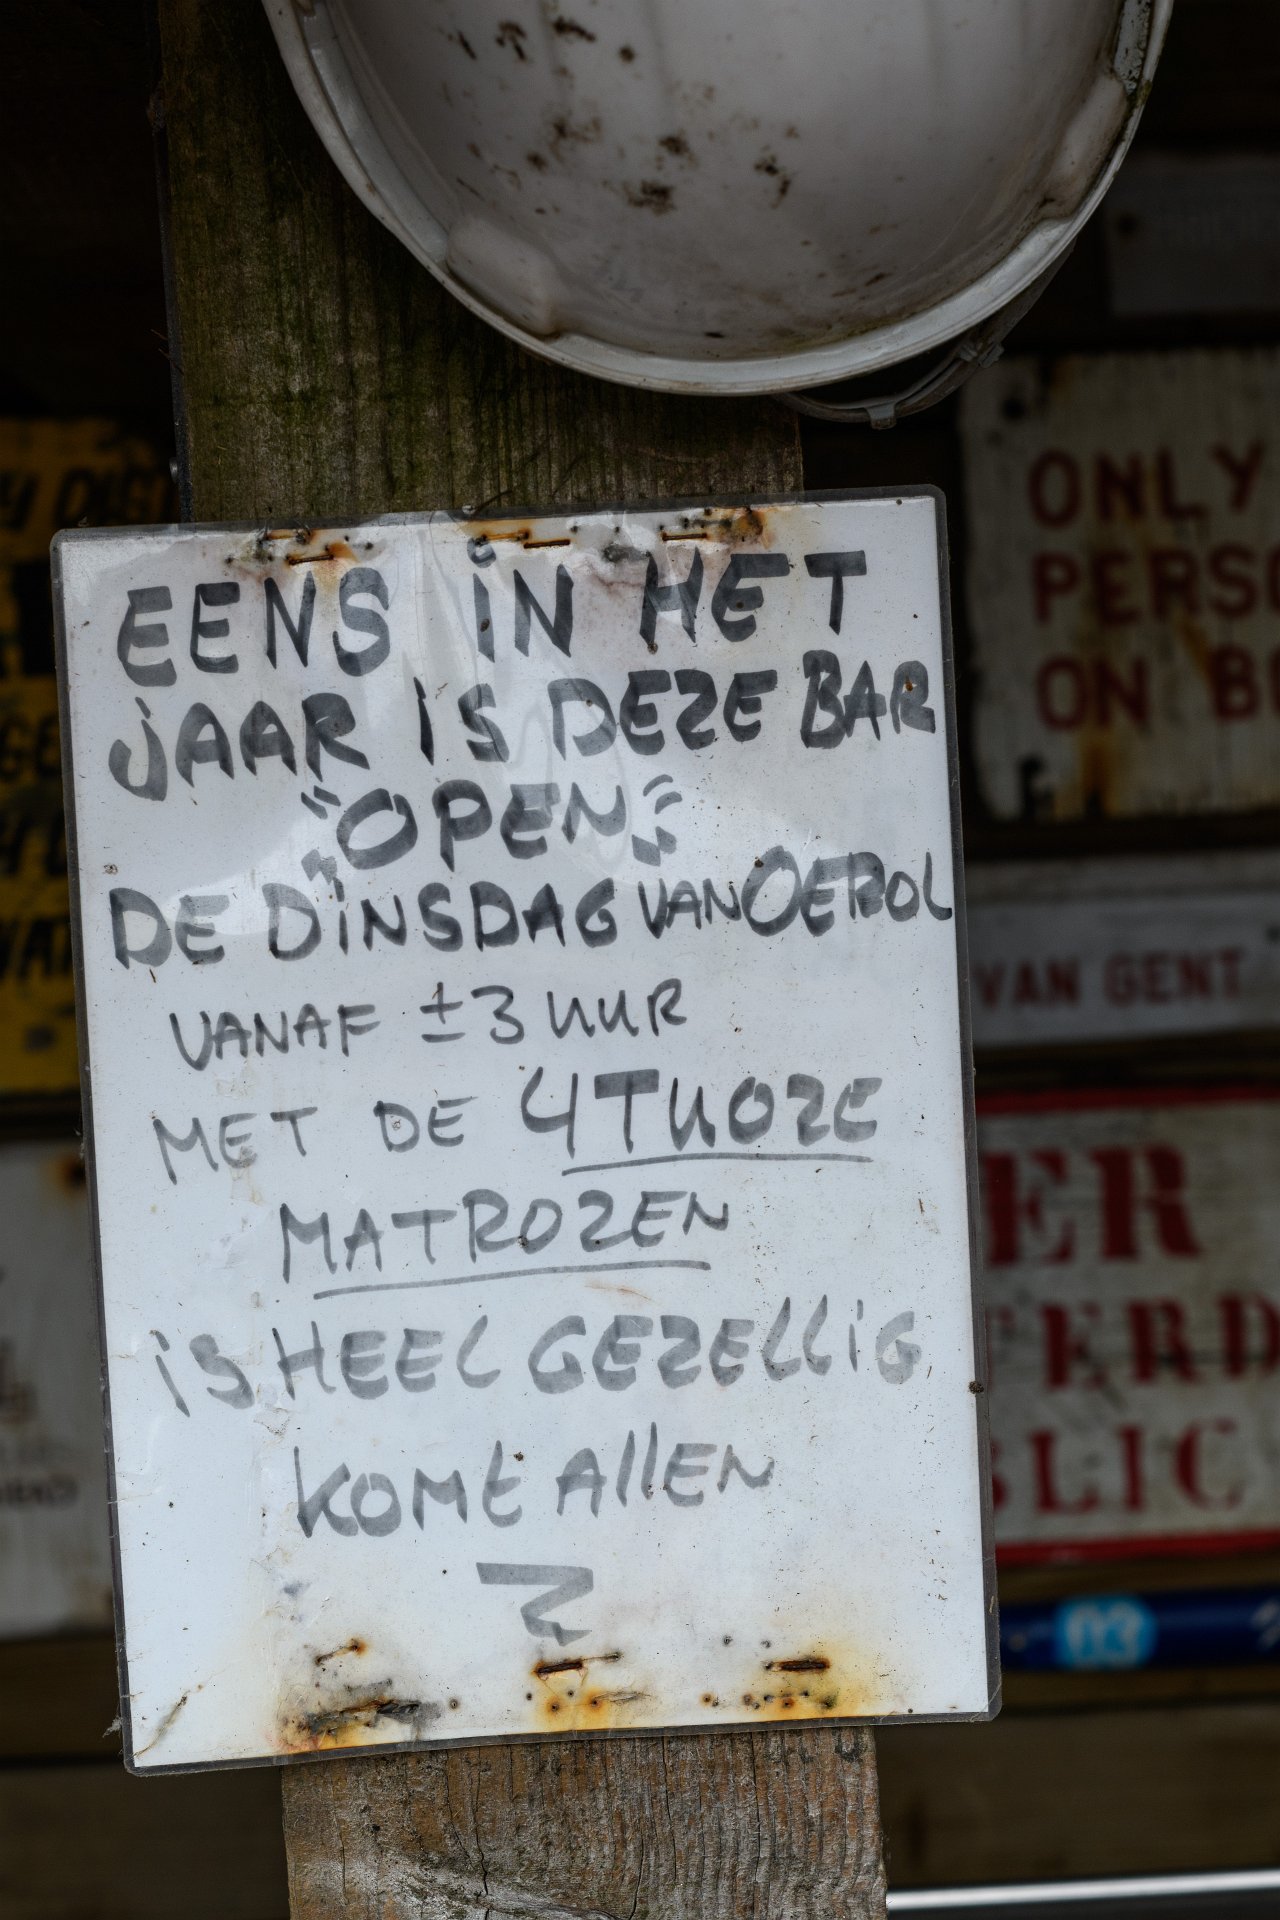 EENS IN HET
JAAR IS DEZE BAR
"OPEN"
DE DINSDAG VAN OEROL
VANAF ± 3 UUR
MET DE 4 TUOZE
MATROZEN
IS HEEL GEZELLIG
KOMt AllEN
ONLY
PERS
ON B
VAN GENT
ER
ERD
BLIC
03